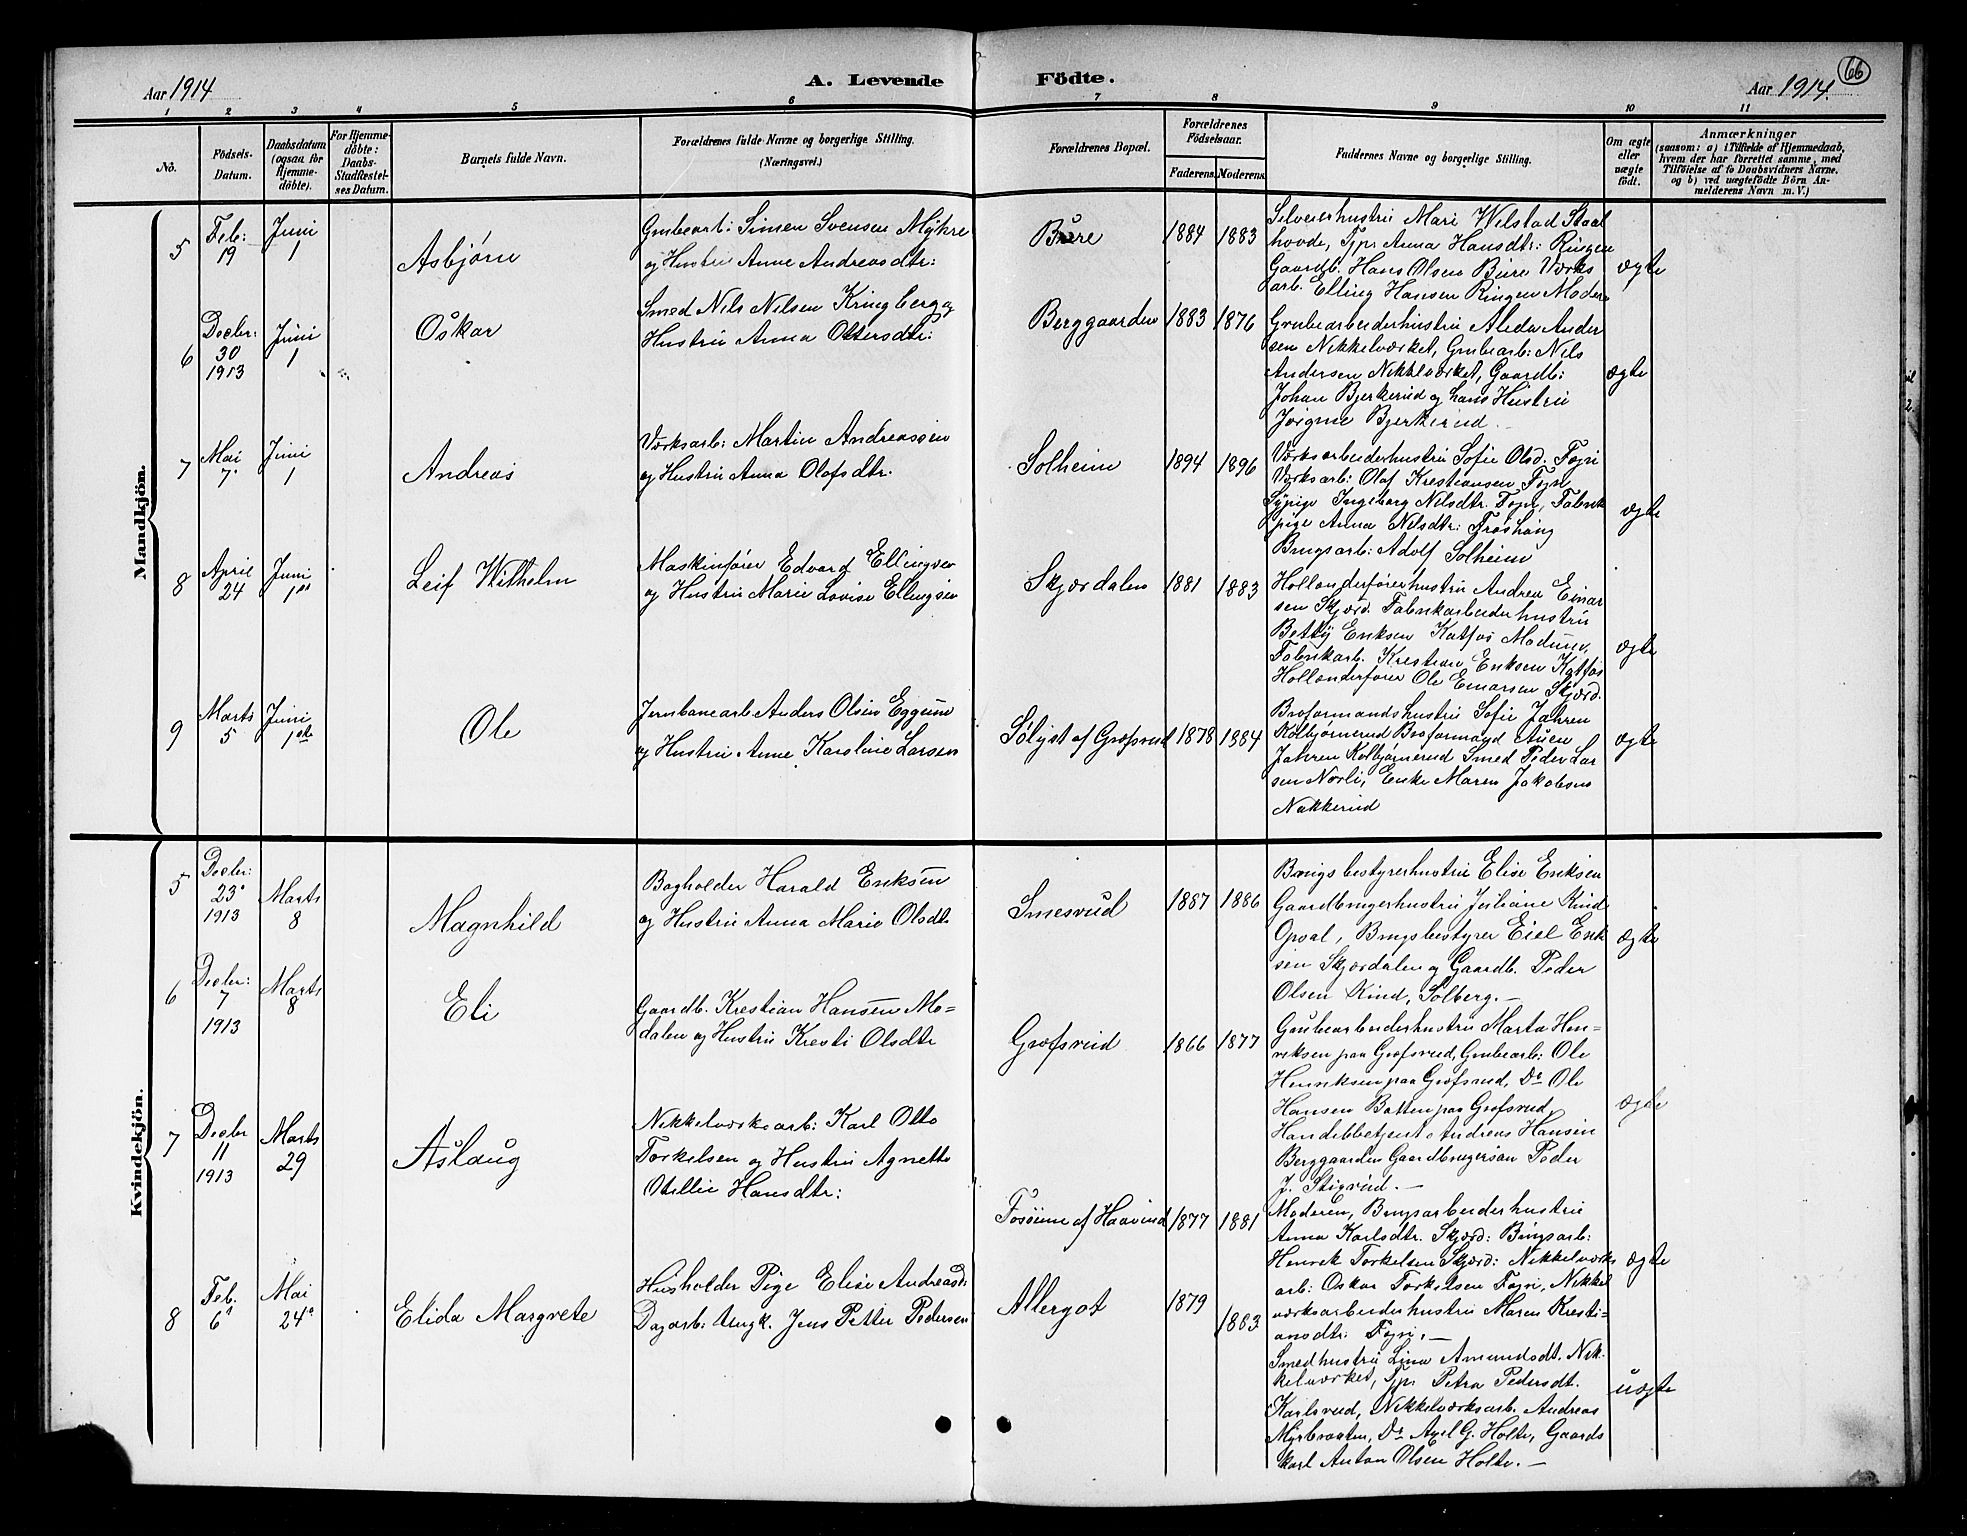 66
Aar 1914
A. Levende Födte.
Aar 1914.
1 2 3 4 5 6 7 8 9 10 11
No.
Födsels-
Datum.
Daabsdatum
(ogsaa for
Hjemme-
döbte).
For Hjemme-
döbte:
Daabs-
Stadfæstel-
ses Datum.
Barnets fulde Navn.
Forældrenes fulde Navne og borgerlige Stilling.
(Næringsvei.)
Forældrenes Bopæl.
Forældrenes
Födselsaar.
Faderens. Moderens.
Faddernes Navne og borgerlige Stilling.
Om ægte
eller
uægte
födt.
Anmærkninger
(saasom: a) i Tilfælde af Hjemmedaab,
hvem der har forrettet samme, med
Tilföielse af to Daabsvidners Navne,
og b) ved uægtefödte Börn An-
melderens Navn m. V.)
Mandkjön.
5
Feb:
19
Juni
1
Asbjørn
Grubearb: Simen Svensen Myhre
og Hustru Anne Andreasdtr:
Bure
1884 1883
Selveierhustru Mari Wilstad Staal
hovde, Tjp. Anna Hansdtr: Ringen
Gaardb. Hans Olsen Bure Værks
arb. Elling Hansen Ringen Modere
ægte
6
Decbr:
30
1913
Juni
1
Oskar
Smed Nils Nilsen Kringberg og
Hustru Anna Ottersdtr:
Berggaarden
1883 1876
Grubearbeiderhustru Alida Ander
sen Nikkelværket, Grubearb: Nils
Andersen Nikkelværket, Gaardb:
Johan Bjerkerud og hans Hustru
Jørgine Bjerkerud.
ægte
7
Mai
7
Juni
1
Andreas
Værksarb: Martin Andreassen
og Hustru Anna Olafsdtr.
Solheim
1894 1896
Værksarbeiderhustru Sofie Olsd. Fogn
Værksarb: Olaf Krestiansen Fogn
Sypige Ingeborg Nilsdtr. Fogn, Fabrik
pige Anna Nilsdtr: Froshaug
Brugsarb: Adolf Solheim
ægte
8
April
24
Juni
1ste
Leif Wilhelm
Maskinfører Edvard Ellingsen
og Hustru Marie Lovise Ellingsen
Skjærdalen
1881 1883
Hollænderførerhustru Andrea Einar
sen Skjærd. Fabrikarbeiderhustru
Betty Eriksen Katfos Modum,
Fabrikarb. Krestian Eriksen Katfos
Hollænderfører Ole Einarsen Skjærd.
ægte
9
Marts
5
Juni
1ste
Ole
Jernbanearb Anders Olsen Eggum
og Hustru Anne Karoline Larsen
Sølyst af Grøfsrud
1878 1884
Broformandshustru Sofie Jahren
Kolbjørnerud Broformand Auen
Jahren Kolbjørnerud Smed Peder Lar
sen Norli, Enke Maren Jakobsen
Nakkerud
ægte
Kvindekjön.
5
Decbr:
23
1913
Marts
8
Magnhild
Bogholder Harald Eriksen
og Hustru Anna Marie Olsdt.
Smesrud
1887 1886
Brugsbestyrerhustru Elise Eriksen
Gaardbrugerhustru Juliane Kind
Opsal, Brugsbestyrer Eiel Erik
sen Skjærdalen og Gaardb. Peder
Olsen Kind, Solberg.—
ægte
6
Decbr:
7
1913
Marts
8
Eli
Gaardb. Krestian Hansen Mo=
dalen og Hustru Kresti Olsdtr
Grøfsrud
1866 1877
Grubearbeiderhustru Marta Hen=
riksen paa Grøfsrud, Grubearb: Ole
Henriksen paa Grøfsrud, Do Ole
Hansen Batten paa Grøfsrud,
Handelsbetjent Andreas Hansen
Berggaarden Gaardbrugersøn Peder
J. Stigrud.—
ægte
7
Decbr
11
1913
Marts
29
Aslaug
Nikkelværksarb: Karl Otto
Torkelsen og Hustru Agnette
Otellie Hansdtr:
Fosheim af Haarud
1877 1881
Moderen, Brugsarbeiderhustru
Anna Karlsdtr. Skjærd: Brugsarb:
Henrik Torkelsen Skjærd: Nikkelværks
arb: Oskar Torkelsen Fogn, Nikkel
værksarbeiderhustru Maren Kresti=
ansdtr: Fogn.—
ægte
8
Feb.
6
Mai
24
Elida Margrete
Husholder Pige Elise Andreasd:
Dagarb: Ungk. Jens Petter Pedersen
Allergot
1879
1883
Smedhustru Lina Amundsdt. Nik-
kelværket, Tjp. Petra Pedersdt.
Karlsrud, Nikkelværksarb. Andreas
Myrbraaten, Do Axel G. Holte, Gaards
karl Anton Olsen Holte.—
uægte